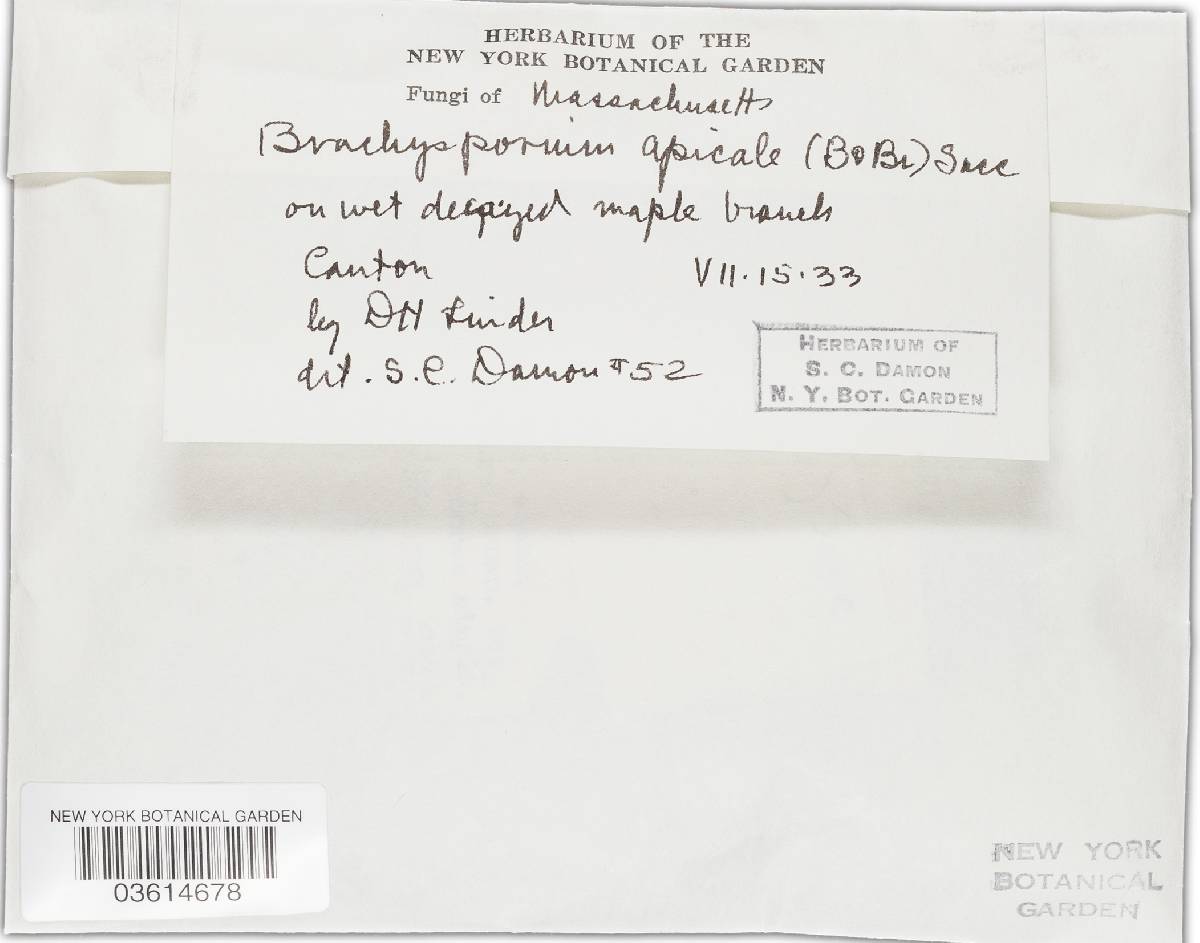 HERBARIUM OF THE
NEW YORK BOTANICAL GARDEN
Fungi of Massachusetts
Brachysporium apicale (B&Br) Sacc
on wet decayed maple branch
Canton VII.15.33
leg DH Linder
det. S.C. Damon #52
HERBARIUM OF
S. C. DAMON
N. Y. BOT. GARDEN
NEW YORK BOTANICAL GARDEN
03614678
NEW YORK
BOTANICAL
GARDEN